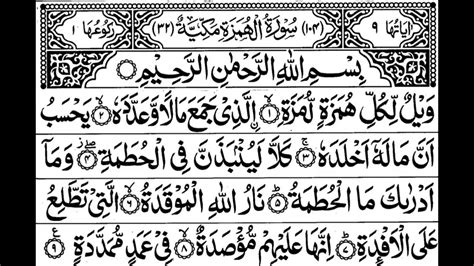 اٰيَاتُهَا ٩ (١٠٤) سُوْرَةُ الْهُمَزَةِ مَكِّيَّةٌ (٣٢) رُكُوْعُهَا ١
بِسْمِ اللّٰهِ الرَّحْمٰنِ الرَّحِيْمِ
وَيْلٌ لِّكُلِّ هُمَزَةٍ لُّمَزَةِ ۙ﴿١﴾ الَّذِيْ جَمَعَ مَالًا وَّعَدَّدَهٗ ۙ﴿٢﴾ يَحْسَبُ
اَنَّ مَالَهٗۤ اَخْلَدَهٗ ۚ﴿٣﴾ كَلَّا لَيُنْۢبَذَنَّ فِي الْحُطَمَةِ ۖ﴿٤﴾ وَمَاۤ
اَدْرٰىكَ مَا الْحُطَمَةُ ؕ﴿٥﴾ نَارُ اللّٰهِ الْمُوْقَدَةُ ۙ﴿٦﴾ الَّتِيْ تَطَّلِعُ
عَلَى الْاَفْـِٕدَةِ ؕ﴿٧﴾ اِنَّهَا عَلَيْهِمْ مُّؤْصَدَةٌ ۙ﴿٨﴾ فِيْ عَمَدٍ مُّمَدَّدَةٍ ﴿٩﴾ ع